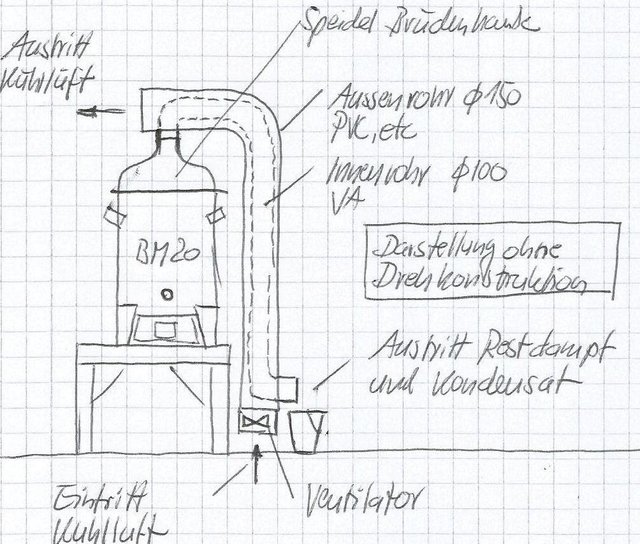 Speidel Brüdenhaube
Austritt
Kühlluft
Aussenrohr ϕ150
PVC, etc
Innenrohr ϕ100
VA
BM20
Darstellung ohne
Drehkonstruktion
Austritt Restdampf
und Kondensat
Eintritt
Kühlluft
Ventilator